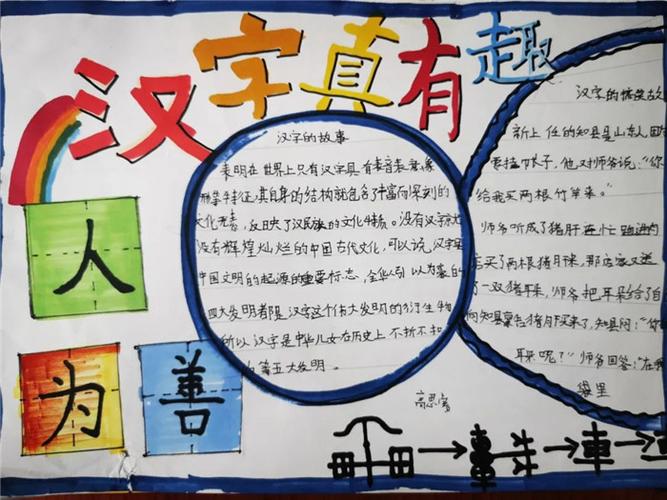 汉字真有趣
人
为 善
汉字的故事
表明在世界上只有汉字具有表音表意像
形等特征,其自身的结构就包含了丰富而深刻的
文化元素,反映了汉民族的文化特质。没有汉字
没有辉煌灿烂的中国古代文化,可以说,汉字是
中国文明的起源的重要标志,全华人引以为豪的
四大发明都是汉字这个伟大发明的衍生物
所以汉字是中华儿女在历史上不折不扣
第五大发明。
高思
汉字的搞笑故
新上任的知县是山东人,因
要挂帐子,他对师爷说:“你
给我买两根竹竿来。”
师爷听成了猪肝连忙跑进肉
店买了两根猪肝,那店家又送
了一双猪耳朵,师爷把耳朵给了自
向知县禀告猪肝买来了,知县问:“你
耳朵呢?”师爷回答:“在我
袋里
車